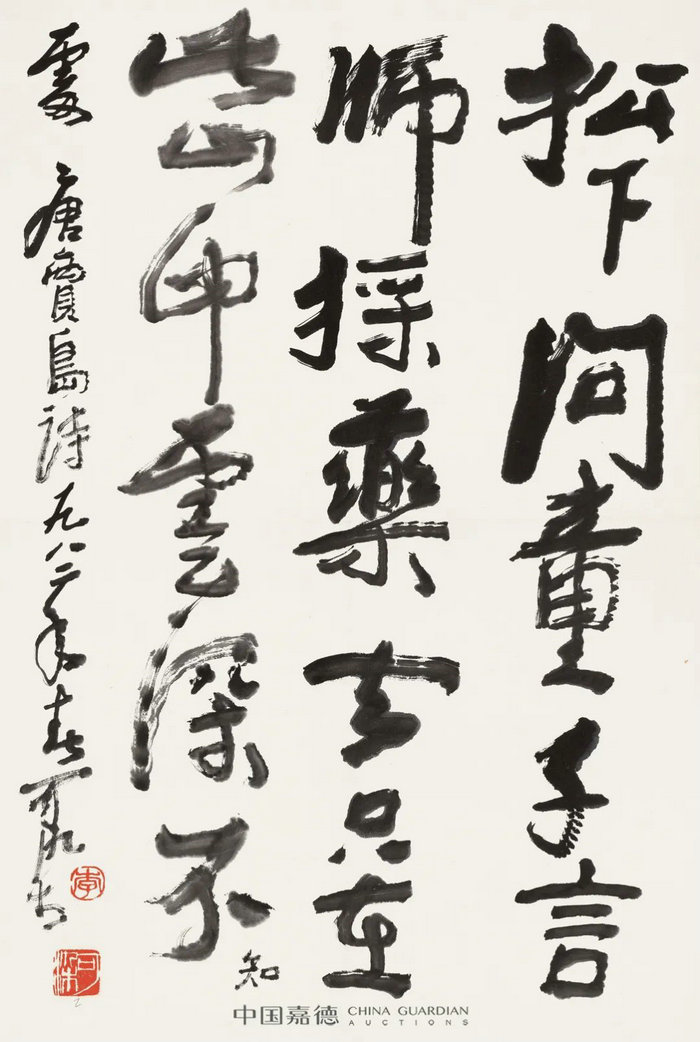 松下問童子言
師採藥去只在
此山中雲深不知
處 唐賈島詩 一九八二年春 可染書
李
可染
中国嘉德 CHINA GUARDIAN
AUCTIONS